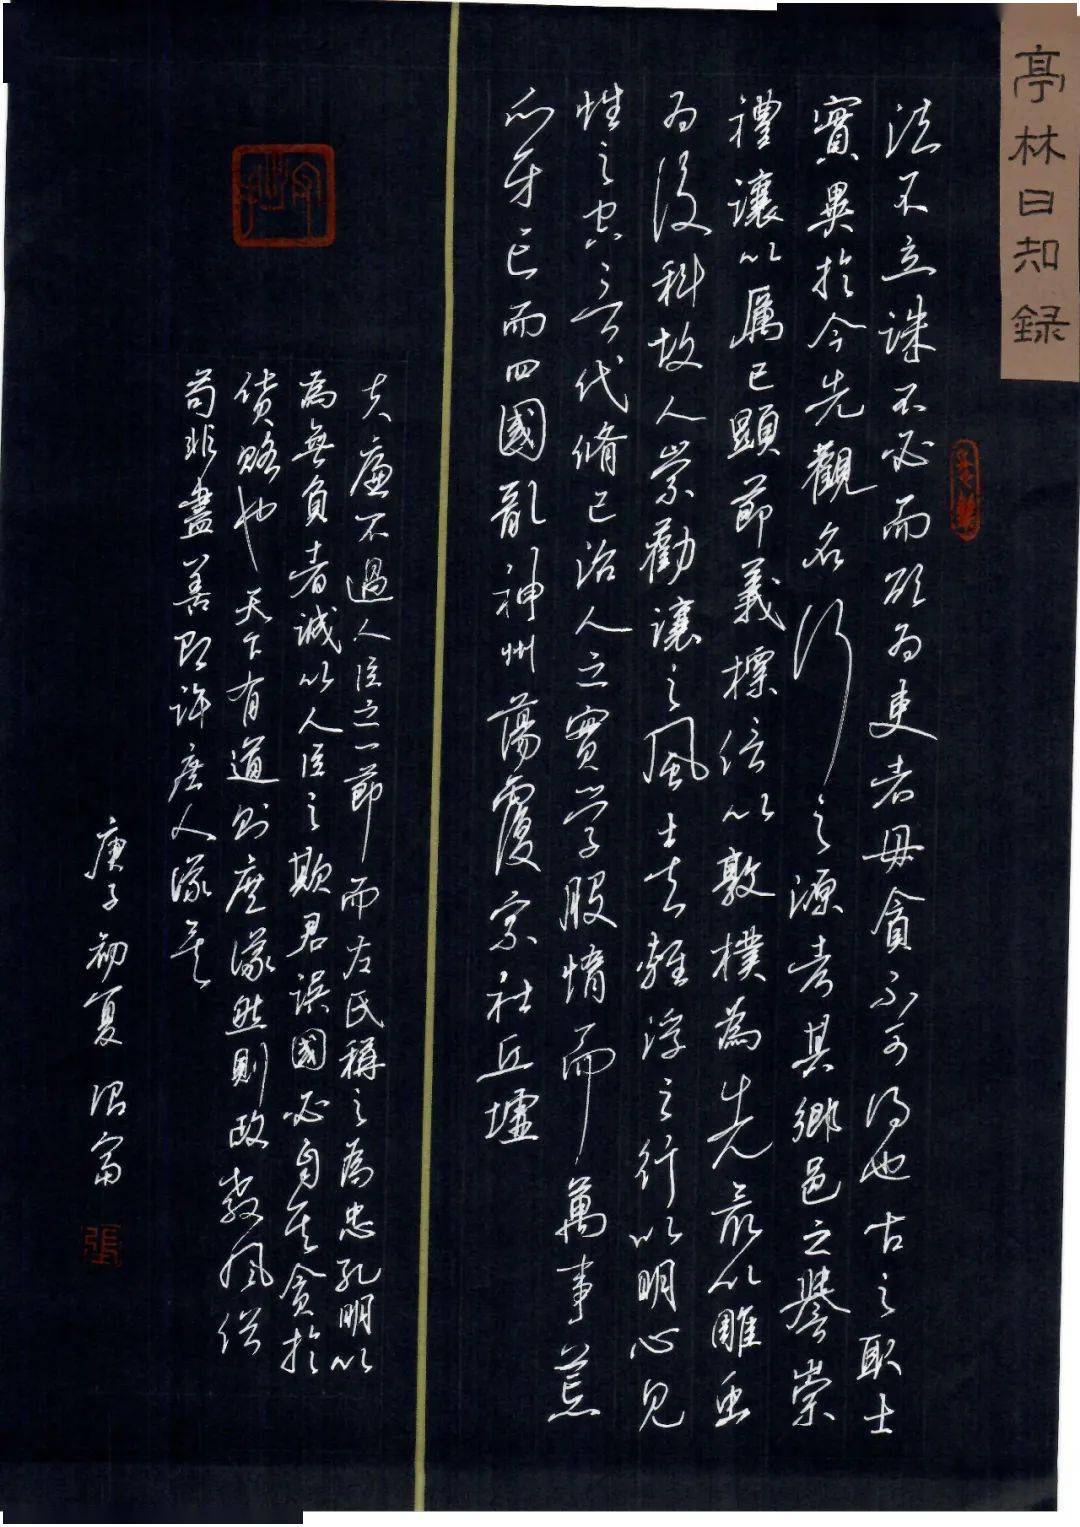 亭林日知録
法不立誅不必而欲为吏者毋貪不可得也古之取士
實異於今先觀名行之源考其鄉邑之譽崇
禮讓以厲已顯節義標信以敦樸為先最以雕虫
为後科故人崇勸讓之風士去輕浮之行以明心見
性之空言代脩己治人之實学股惰而萬事荒
爪牙亡而四國亂神州蕩覆宗社丘墟
夫廉不過人臣之一節而左氏稱之為忠孔明以
為無負者誠以人臣之欺君誤國必自其貪於
貨賂也天下有道则庶議然則政教風俗
苟非盡善即許庶人議矣
庚子初夏
張